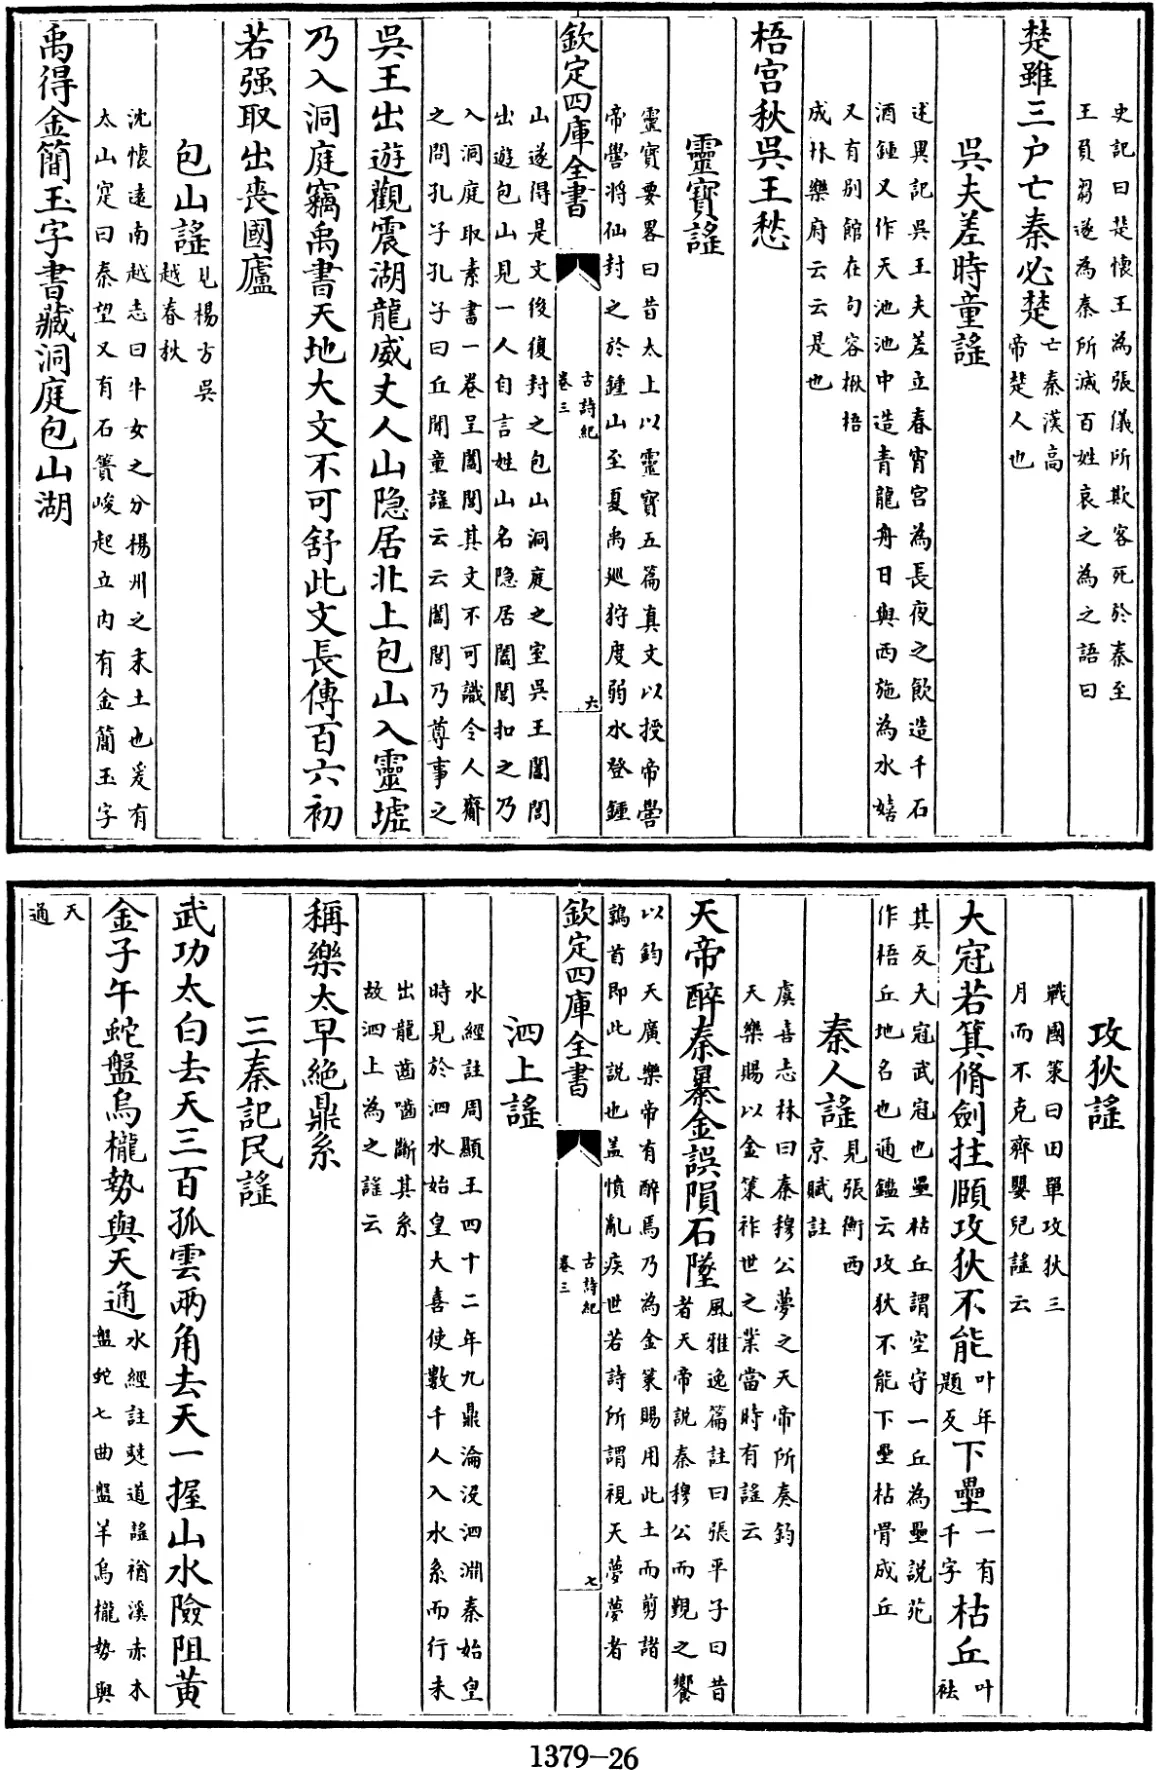 史記曰楚懷王為張儀所欺客死於秦至
王負芻遂為秦所滅百姓哀之為之語曰
楚雖三户亡秦必楚亡秦漢高帝楚人也
吳夫差時童謡
述異記吳王夫差立春宵宫為長夜之飲造千石
酒鍾又作天池池中造青龍舟日與西施為水嬉
又有別館在句容楸梧
成林樂府云云是也
梧宫秋吳王愁
靈寳謡
靈寳要畧曰昔太上以靈寳五篇真文以授帝嚳
帝嚳將仙封之於鍾山至夏禹廵狩度弱水登鍾
欽定四庫全書
古詩紀
卷三
六
山遂得是文後復封之包山洞庭之室吳王闔閭
出遊包山見一人自言姓山名隐居闔閭扣之乃
入洞庭取素書一卷呈闔閭其文不可識令人齎
之問孔子孔子曰丘聞童謡云云闔閭乃尊事之
吳王出遊觀震湖龍威丈人山隐居北上包山入靈墟
乃入洞庭竊禹書天地大文不可舒此文長傳百六初
若强取出喪國廬
包山謡見楊方吳越春秋
沈懷遠南越志曰牛女之分楊州之末土也爰有
太山定曰秦望又有石簣峻起立内有金簡玉字
禹得金簡玉字書藏洞庭包山湖
攻狄謡
戰國策曰田單攻狄三
月而不克齊嬰兒謡云
大冠若箕脩劍拄頤攻狄不能叶年題反下壘一有千字枯丘叶袪
其反大冠武冠也壘枯丘謂空守一丘為壘說苑
作梧丘地名也通鑑云攻狄不能下壘枯骨成丘
秦人謡見張衡西京賦註
虞喜志林曰秦穆公夢之天帝所奏鈞
天樂賜以金策祚世之業當時有謡云
天帝醉秦暴金誤隕石墜風雅逸篇註曰張平子曰昔者天帝説秦穆公而覲之饗
以鈞天廣樂帝有醉焉乃為金策賜用此土而剪諸
鶉首即此說也盖憤亂疾世若詩所謂視天夢夢者
欽定四庫全書
古詩紀
卷三
七
泗上謡
水經註周顯王四十二年九鼎淪没泗淵秦始皇
時見於泗水始皇大喜使數千人入水系而行未
出龍齒嚙斷其系
故泗上為之謡云
稱樂太早絶鼎系
三秦記民謡
武功太白去天三百孤雲兩角去天一握山水險阻黄
金子午蛇盤烏櫳勢與天通水經註㶇道謡楢溪赤木盤蛇七曲盤羊烏櫳勢與
天通
1379-26